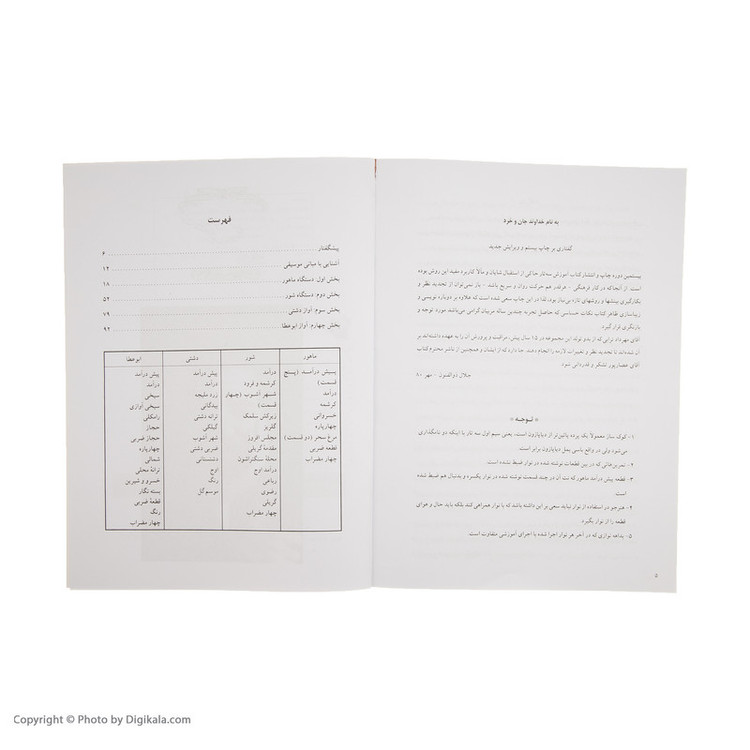 به نام خداوند جان و خرد
گفتاری بر چاپ بیستم و ویرایش جدید
بیستمین دوره چاپ و انتشار کتاب آموزش سه‌تار حاکی از استقبال شایان و مآلاً کاربرد مفید این روش بوده
است. از آنجا که در کار فرهنگی - هرقدر هم حرکت روان و سریع باشد - باز نمی‌توان از تجدید نظر و
بکارگیری بینشها و روشهای تازه بی‌نیاز بود، لذا در این چاپ سعی شده است که علاوه بر دوباره نویسی و
زیباسازی ظاهر کتاب نکات حساسی که حاصل تجربه چندین ساله مربیان گرامی می‌باشد مورد توجه و
بازنگری قرار گیرد.
آقای مهرداد ترابی که از بدو تولد این مجموعه در ۱۵ سال پیش، مراقبت و پرورش آن را به عهده داشته‌اند بر
آن شده‌اند تا تجدید نظر و تغییرات لازمه را انجام دهند. جا دارد که از ایشان و همچنین از ناشر محترم کتاب
آقای عصارپور تشکر و قدردانی شود.
جلال ذوالفنون - مهر ۸۰
* توجه *
۱- کوک ساز معمولاً یک پرده پائین‌تر از دیاپازون است، یعنی سیم اول سه تار با اینکه دو نامگذاری
می‌شود ولی در واقع باسی بمل دیاپازون برابر است.
۲- تمرین‌هائی که در بین قطعات نوشته شده در نوار ضبط نشده است.
۳- قطعه پیش درآمد ماهور که نت آن در چند قسمت نوشته شده در نوار یکسره و بدنبال هم ضبط شده
است.
۴- هنرجو در استفاده از نوار نباید سعی بر این داشته باشد که با نوار همراهی کند بلکه باید حال و هوای
قطعه را از نوار بگیرد.
۵- بداهه نوازی که در آخر هر نوار اجرا شده با اجرای آموزشی متفاوت است.
فهرست
پیشگفتار ۶
آشنایی با مبانی موسیقی ۱۲
بخش اول: دستگاه ماهور ۱۸
بخش دوم: دستگاه شور ۵۲
بخش سوم: آواز دشتی ۷۹
بخش چهارم: آواز ابوعطا ۹۲
ماهور
پیش درآمد (پنج
قسمت)
درآمد
کرشمه
خسروانی
چهارپاره
مرغ سحر (دو قسمت)
قطعه ضربی
چهار مضراب
شور
درآمد
کرشمه و فرود
شهر آشوب (چهار
قسمت)
زیرکش سلمک
گلریز
مجلس افروز
مقدمه گریلی
محلهٔ سنگتراشون
درآمد اوج
رباعی
رضوی
گریلی
چهار مضراب
دشتی
پیش درآمد
درآمد
زرد ملیجه
بیدگانی
ترانه دشتی
گیلکی
شهر آشوب
ضربی دشتی
دشتستانی
اوج
رنگ
موسم گل
ابوعطا
پیش درآمد
درآمد
سیخی
سیخی آوازی
رامکلی
حجاز
حجاز ضربی
چهارپاره
شمالی
ترانهٔ محلی
خسرو و شیرین
بسته نگار
قطعهٔ ضربی
رنگ
چهار مضراب
Copyright © Photo by Digikala.com